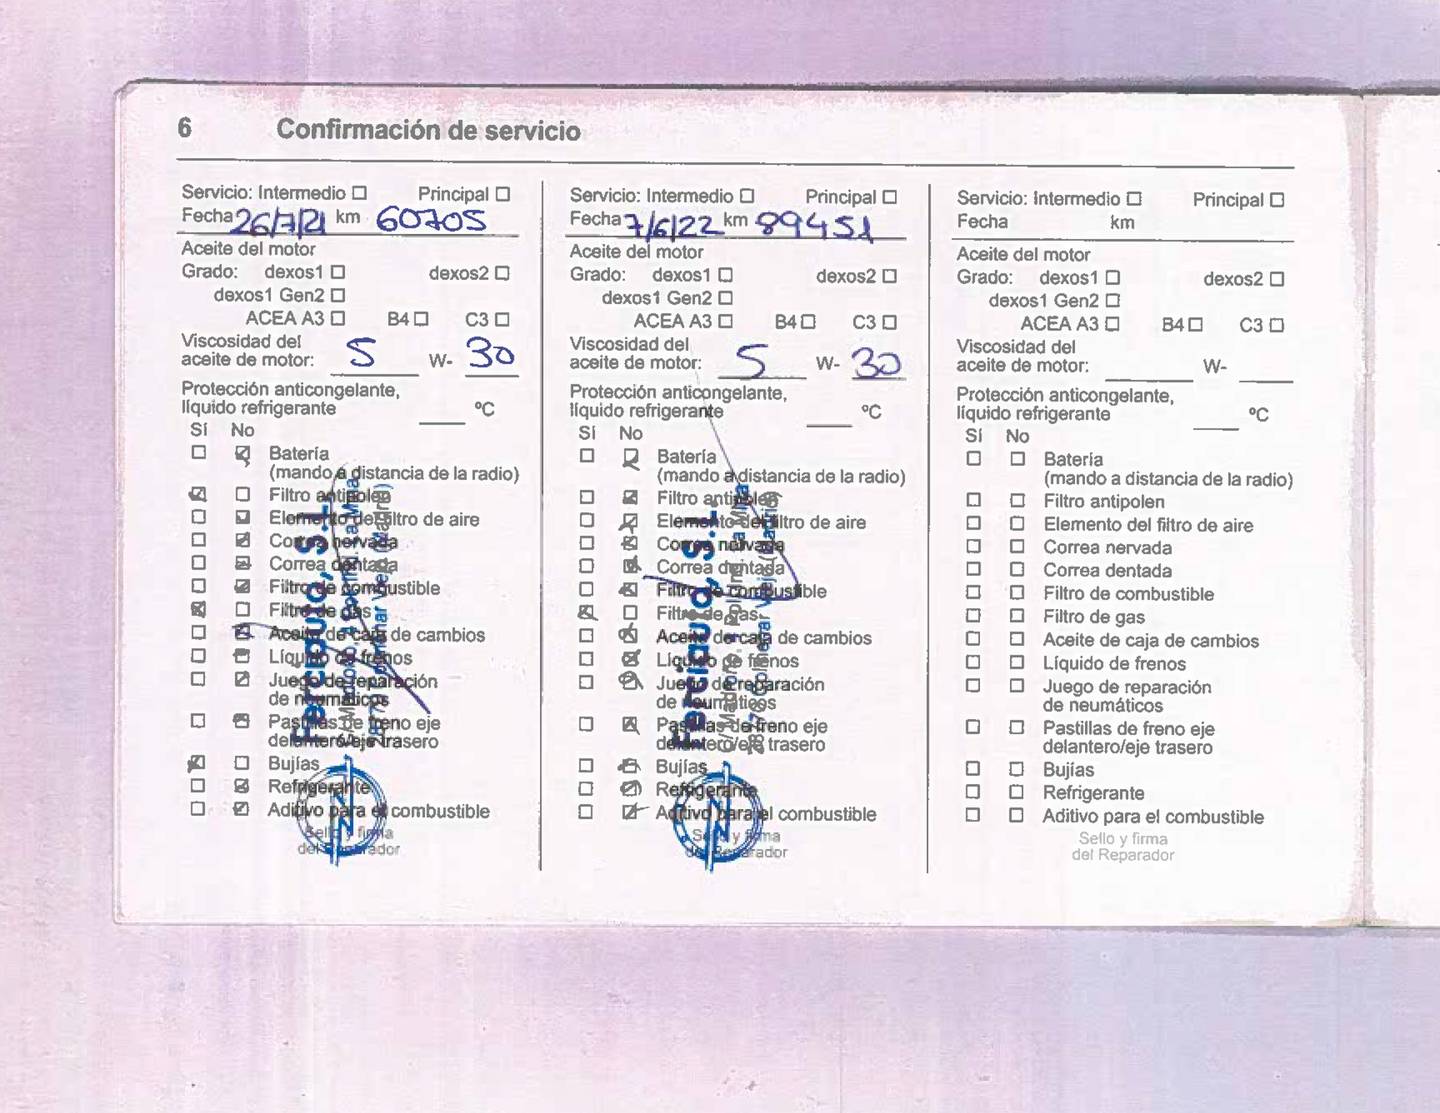 6 Confirmación de servicio
Servicio: Intermedio ☐ Principal ☐
Fecha 26/7/21 km 60705
Aceite del motor
Grado: dexos1 ☐ dexos2 ☐
dexos1 Gen2 ☐
ACEA A3 ☐ B4 ☐ C3 ☐
Viscosidad del
aceite de motor: 5 W- 30
Protección anticongelante,
líquido refrigerante ____ ºC
Sí No
Batería
(mando a distancia de la radio)
Filtro antipolen
Elemento del filtro de aire
Correa nervada
Correa dentada
Filtro de combustible
Filtro de gas
Aceite de caja de cambios
Líquido de frenos
Juego de reparación
de neumáticos
Pastillas de freno eje
delantero/eje trasero
Bujías
Refrigerante
Aditivo para el combustible
Sello y firma
del Reparador
Servicio: Intermedio ☐ Principal ☐
Fecha 7/6/22 km 89451
Aceite del motor
Grado: dexos1 ☐ dexos2 ☐
dexos1 Gen2 ☐
ACEA A3 ☐ B4 ☐ C3 ☐
Viscosidad del
aceite de motor: 5 W- 30
Protección anticongelante,
líquido refrigerante ____ ºC
Sí No
Batería
(mando a distancia de la radio)
Filtro antipolen
Elemento del filtro de aire
Correa nervada
Correa dentada
Filtro de combustible
Filtro de gas
Aceite de caja de cambios
Líquido de frenos
Juego de reparación
de neumáticos
Pastillas de freno eje
delantero/eje trasero
Bujías
Refrigerante
Aditivo para el combustible
Sello y firma
del Reparador
Servicio: Intermedio ☐ Principal ☐
Fecha km
Aceite del motor
Grado: dexos1 ☐ dexos2 ☐
dexos1 Gen2 ☐
ACEA A3 ☐ B4 ☐ C3 ☐
Viscosidad del
aceite de motor: ____ W- ____
Protección anticongelante,
líquido refrigerante ____ ºC
Sí No
☐ ☐ Batería
(mando a distancia de la radio)
☐ ☐ Filtro antipolen
☐ ☐ Elemento del filtro de aire
☐ ☐ Correa nervada
☐ ☐ Correa dentada
☐ ☐ Filtro de combustible
☐ ☐ Filtro de gas
☐ ☐ Aceite de caja de cambios
☐ ☐ Líquido de frenos
☐ ☐ Juego de reparación
de neumáticos
☐ ☐ Pastillas de freno eje
delantero/eje trasero
☐ ☐ Bujías
☐ ☐ Refrigerante
☐ ☐ Aditivo para el combustible
Sello y firma
del Reparador